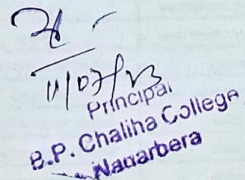 11/07/23
Principal
B.P. Chaliha College
Nagarbera